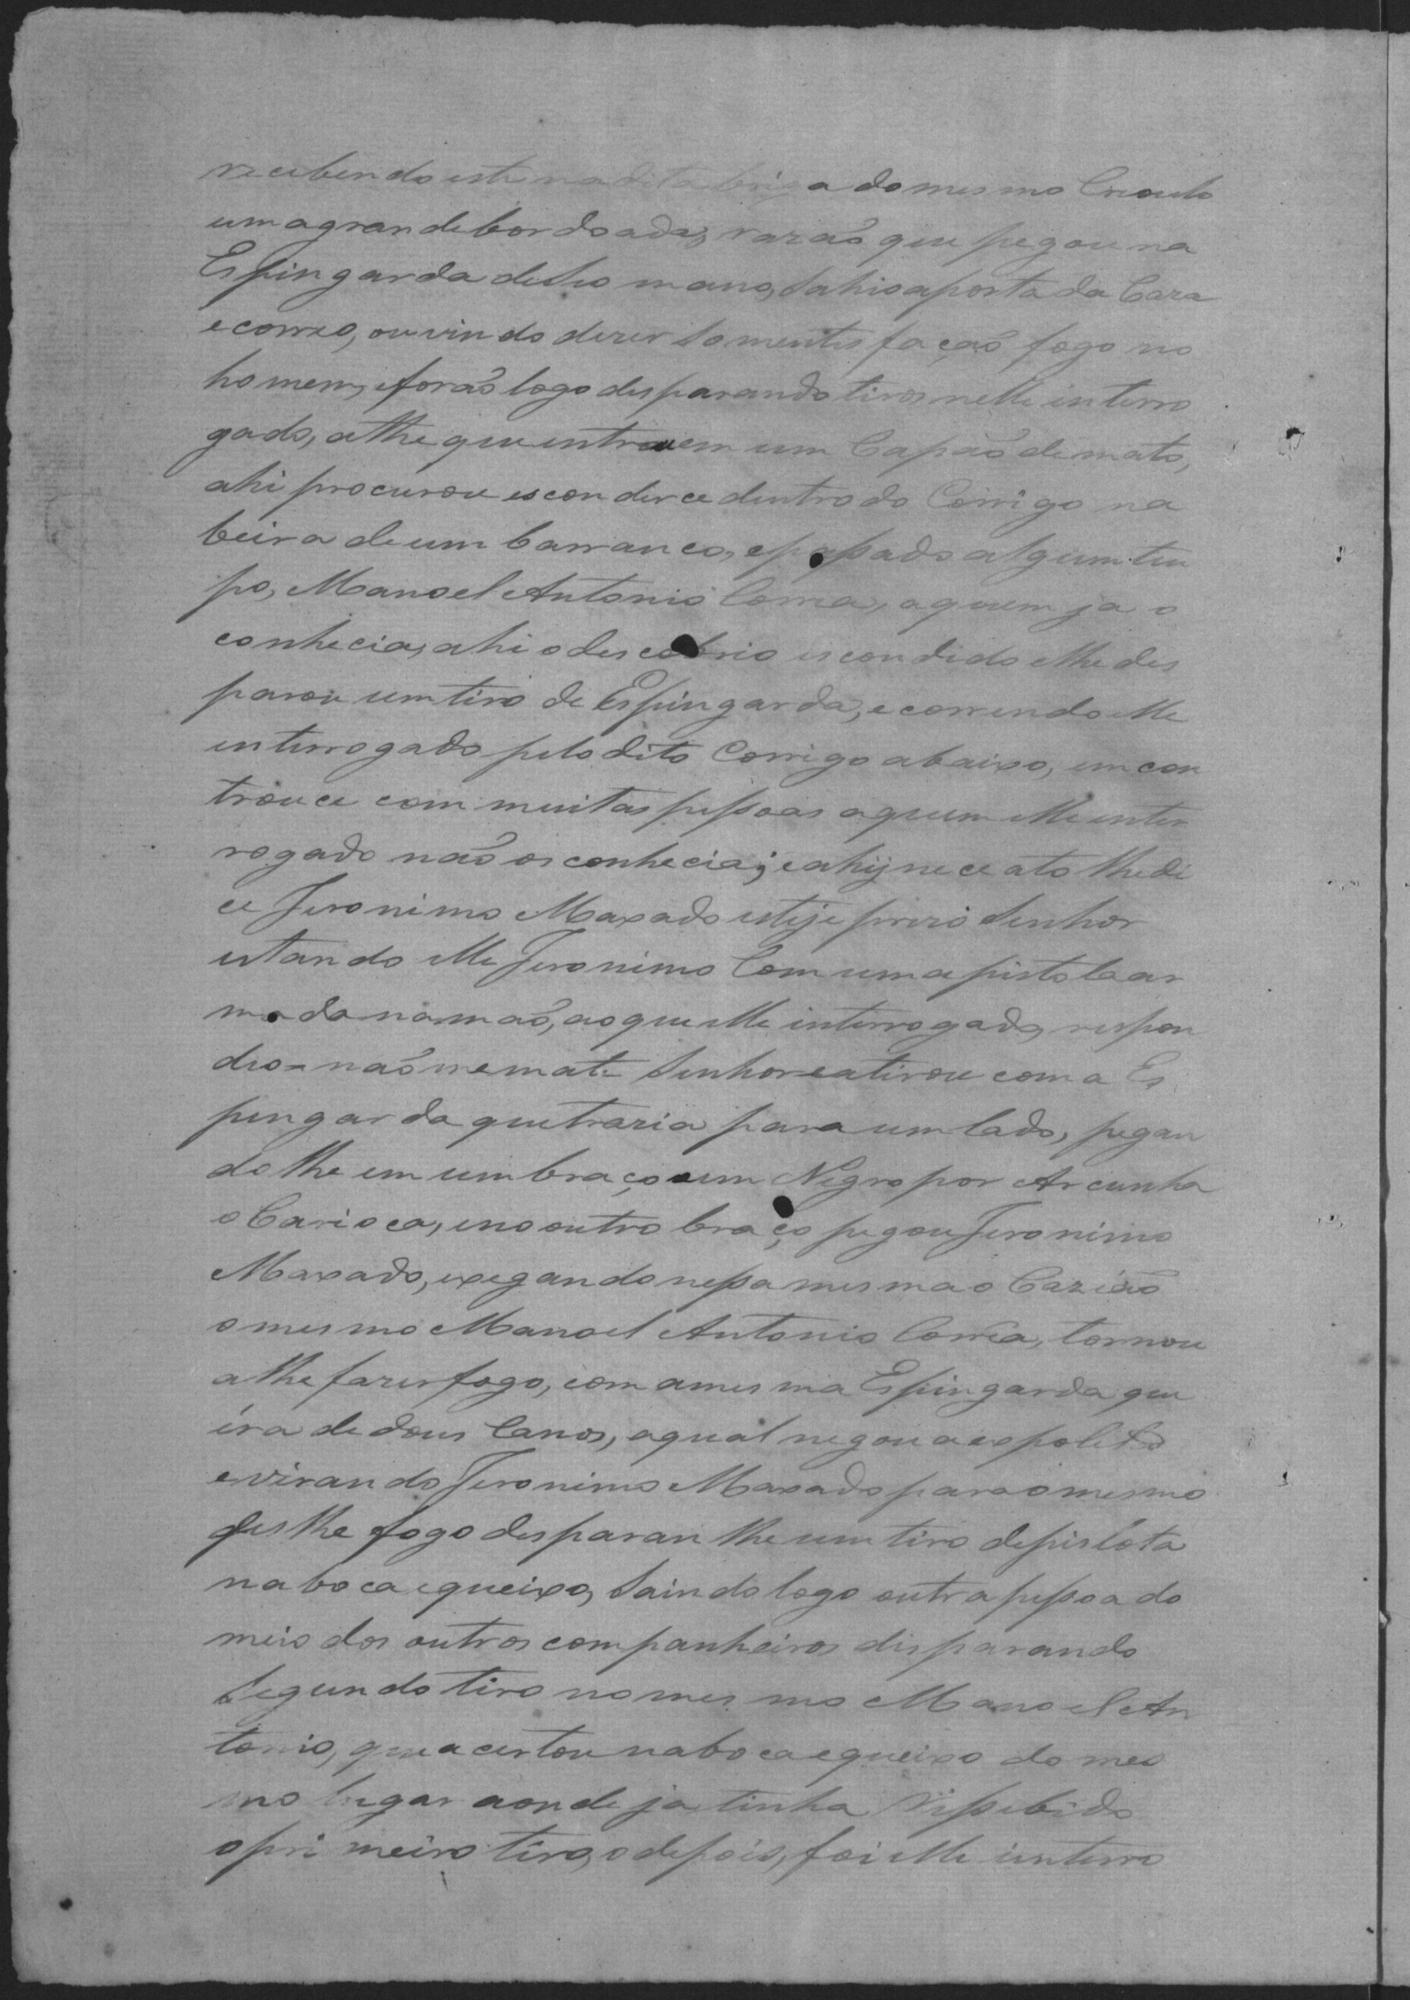 recebendo este na dita briga do mesmo Crioulo
uma grande bordoada, razaõ que pegou na
Espingarda deseo mano, sahio aporta da Caza
e correo, ouvindo dezer somentes façaõ fogo no
homem, eforaõ logo desparando tiros nelle interro
gado, athe que entrou em um Capaõ de mato,
ahi procurou esconderce dentro do Corrigo na
beira de um barranco, epassado algum tem
po, Manoel Antonio Correa, aquem ja o
conhecia, ahi o descobrio escondido elhe des
parou um tiro de Espingarda, e correndo elle
interrogado pelo dito Corrigo abaixo, emcon
trouce com muitas pessoas aquem elle inter
rogado naõ os conhecia; eahy nece ato lhe di
ce Jeronimo Maxado esteje prezo Senhor
estando elle Jeronimo Com uma pistola ar
mada namaõ, aoque elle interrogado, respon
deo = naõ me mate Senhor e atirou com a Es
pingarda que trazia para um lado, pegan
do lhe em um braço um Negro por Arcunha
o Carioca, eno outro braço pegou Jeronimo
Maxado, exegando nessa mesma o Caziaõ
omesmo Manoel Antonio Correa, tornou
a lhe fazer fogo, com a mesma Espingarda que
éra de dous Canos, aqual negou a espoleta
evirando Jeronimo Maxado para o mesmo
fes lhe fogo desparan lhe um tiro de pistola
na boca equeixo, Saindo logo outra pessoa do
meio dos outros companheiros disparando
Segundo tiro no mesmo Manoel An
tonio, que acertou naboca equeixo do mes
mo lugar aonde ja tinha rissebido
opri meiro tiro, odepois, foi elle interro